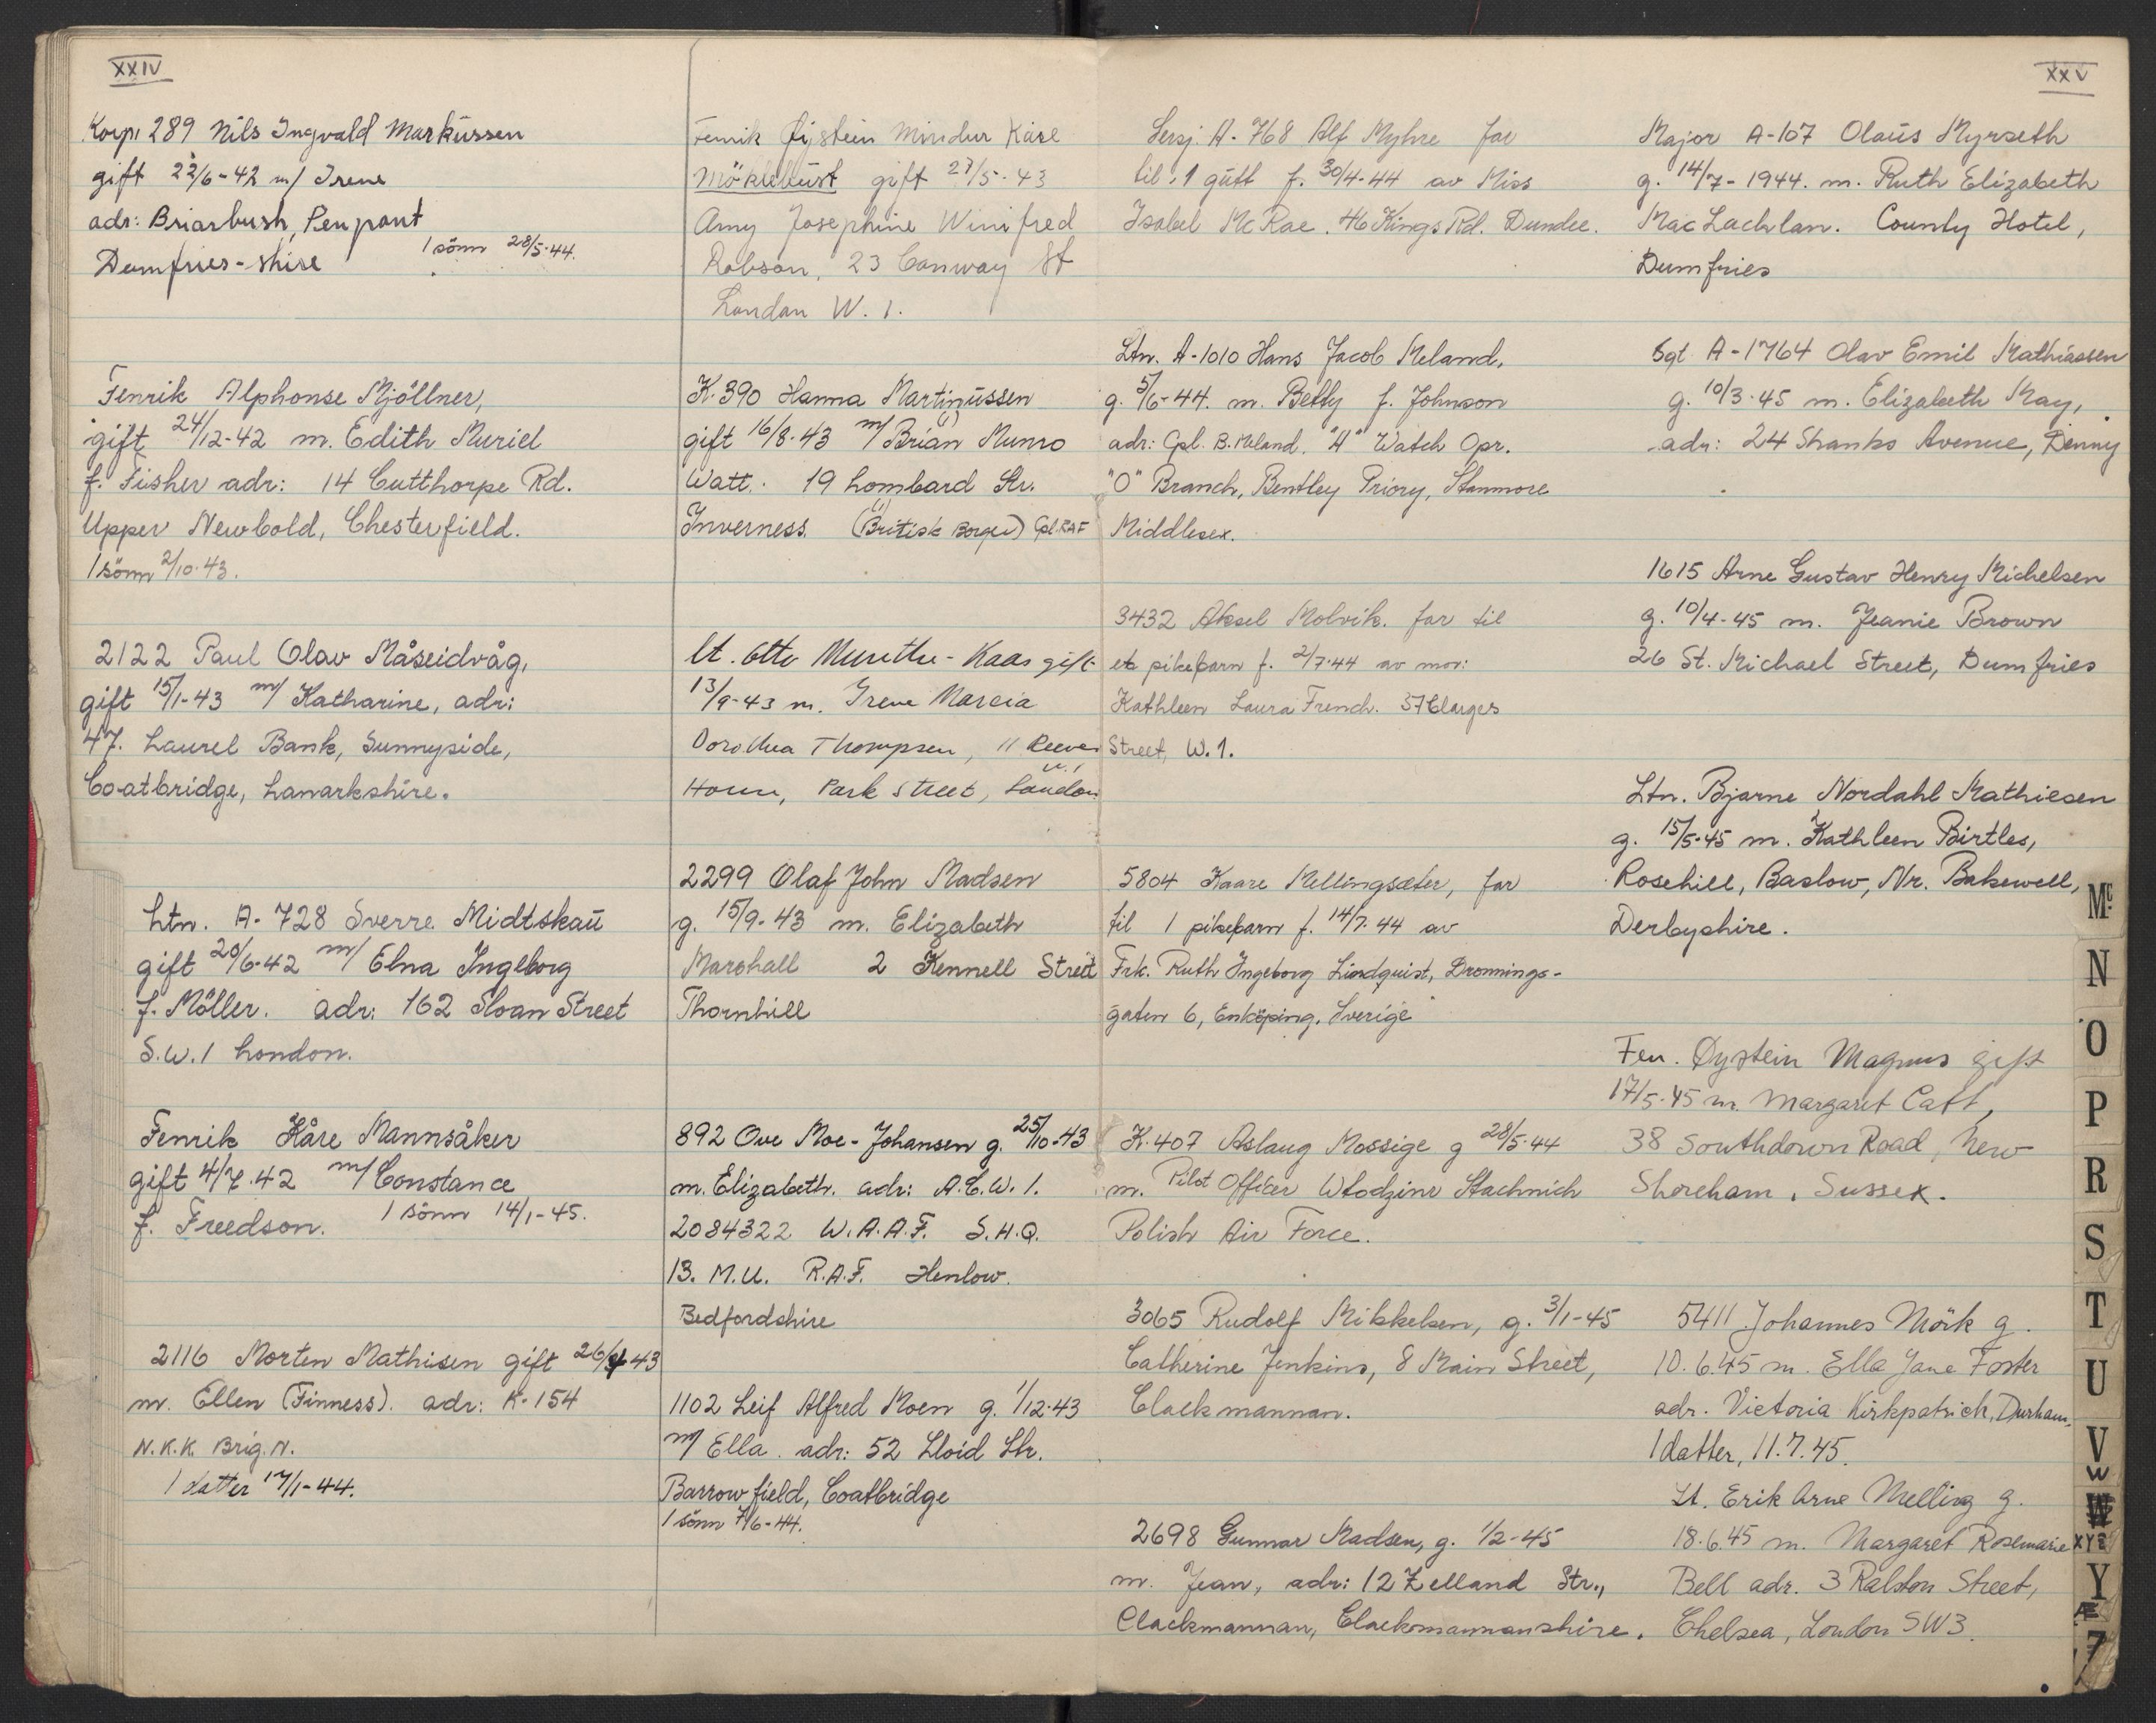 XXIV
Korp. 289 Nils Ingvald Markussen
gift 22/6-42 m/ Irene
adr: Briarbush, Penpont
Dumfries-shire 1 sönn 28/5-44.
Fenrik Alphonse Mjöllner,
gift 24/12-42 m. Edith Muriel
f. Fisher adr: 14 Cutthorpe Rd.
Upper Newbold, Chesterfield.
1 sönn 2/10-43.
2122 Paul Olav Måseidvåg,
gift 15/1-43 m/ Katharine, adr:
47. Laurel Bank, Sunnyside,
Coatbridge, Lanarkshire.
Ltn. A-728 Sverre Midtskau
gift 20/6-42 m/ Elna Ingeborg
f. Möller. adr: 162 Sloan Street
S.W.1 London.
Fenrik Kåre Mannsåker
gift 4/7.42 m/ Constance
f. Freedson. 1 sönn 14/1-45.
2116 Morten Mathisen gift 26/ 43
m. Ellen (Finness). adr: K-154
N.K.K. Brig. N.
1 datter 17/1-44.
Fenrik Öjstein Mindur Kåre
Möklebust gift 27/5-43
Amy Josephine Winifred
Robson, 23 Conway St
London W.1.
K.390 Hanna Martinussen
gift 16/8-43 m/ Brian Munro
Watt. 19 Lombard Str.
Inverness. (Britisk Borger) Cpl. RAF
Lt. Otto Munthe-Kaas gift
13/9-43 m. Irene Marcia
Dorothea Thompsen, 11 Reeves
House, Park Street, London W.1
2299 Olaf John Madsen
g. 15/9-43 m. Elizabeth
Marshall 2 Kennell Street
Thornhill
892 Ove Moe-Johansen g. 25/10-43
m. Elizabeth. adr: A.C.W.1.
2084322 W.A.A.F. S.H.Q.
13. M.U. R.A.F. Henlow.
Bedfordshire
1102 Leif Alfred Moen g. 1/12-43
m/ Ella. adr: 52 Lloid Str.
Barrowfield, Coatbridge
1 sönn 7/6-44.
XXV
Sersj. A-768 Alf Myhre far
til 1 gutt f. 30/4-44 av Miss
Isabel McRae. 46 Kings Rd. Dundee.
Ltn. A-1010 Hans Jacob Meland.
g. 5/6-44. m. Betty f. Johnson
adr: Cpl. B. Meland. "H" Watch Opr.
"O" Branch, Bentley Priory, Stanmore
Middlesex.
3432 Aksel Molvik. far til
et pikebarn f. 2/7-44 av mor:
Kathleen Laura French. 37 Clarges
Street, W.1.
5804 Kaare Mellingsæter, far
til 1 pikebarn f. 14/7.44 av
Frk. Ruth Ingeborg Lindquist, Dronnings-
gaten 6, Enköping. Sverige
K.407 Aslaug Mossige g 28/5-44
m. Pilot Officer Wlodzinr Stachnich
Polish Air Force.
3065 Rudolf Mikkelsen, g. 3/1-45
Catherine Jenkins, 8 Main Street,
Clackmannan.
2698 Gunnar Madsen, g. 1/2-45
m. Jean, adr: 12 Zelland Str.,
Clackmannan, Clackmannanshire.
Major A-107 Olaus Myrseth
g. 14/7-1944. m. Ruth Elizabeth
MacLachlan. County Hotel,
Dumfries
Sgt. A-1764 Olav Emil Mathiassen
g. 10/3-45 m. Elizabeth May,
adr: 24 Shanks Avenue, Denny
1615 Arne Gustav Henry Michelsen
g. 10/4-45 m. Jeanie Brown
26 St. Michael Street, Dumfries
Ltn. Bjarne Nordahl Mathiesen
g. 15/5-45 m. Kathleen Birtles,
Rosehill, Baslow, Nr. Bakewell,
Derbyshire.
Fen. Øystein Magnus gift
17/5-45 m. Margaret Catt,
38 Southdown Road, New
Shoreham, Sussex.
5411 Johannes Mörk g.
10.6.45 m. Ella Jane Foster
adr. Victoria Kirkpatrick, Durham,
1 datter, 11.7.45.
Lt. Erik Arne Melling g.
18.6.45 m. Margaret Rosemarie
Bell adr. 3 Ralston Street,
Chelsea, London SW3.
Mc
N
O
P
R
S
T
U
V
W
W
XYZ
Y
Æ
Z